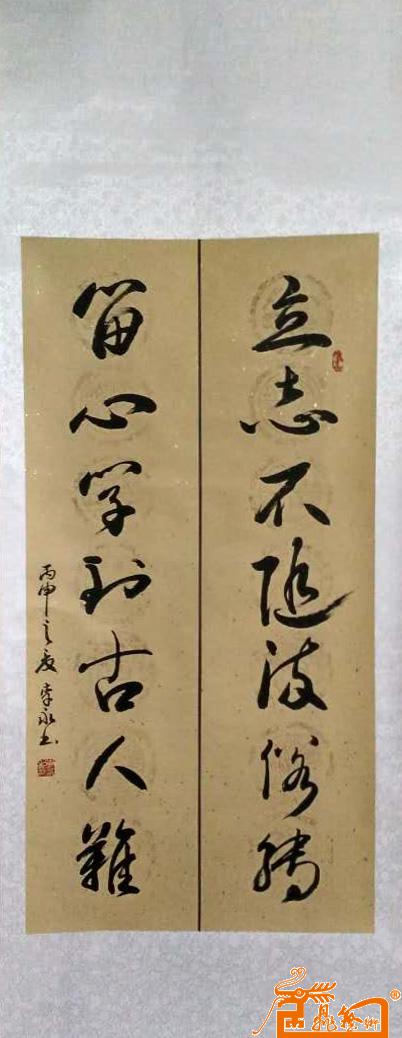 立志不随流俗轉
留心学到古人難
丙申之夏李永书